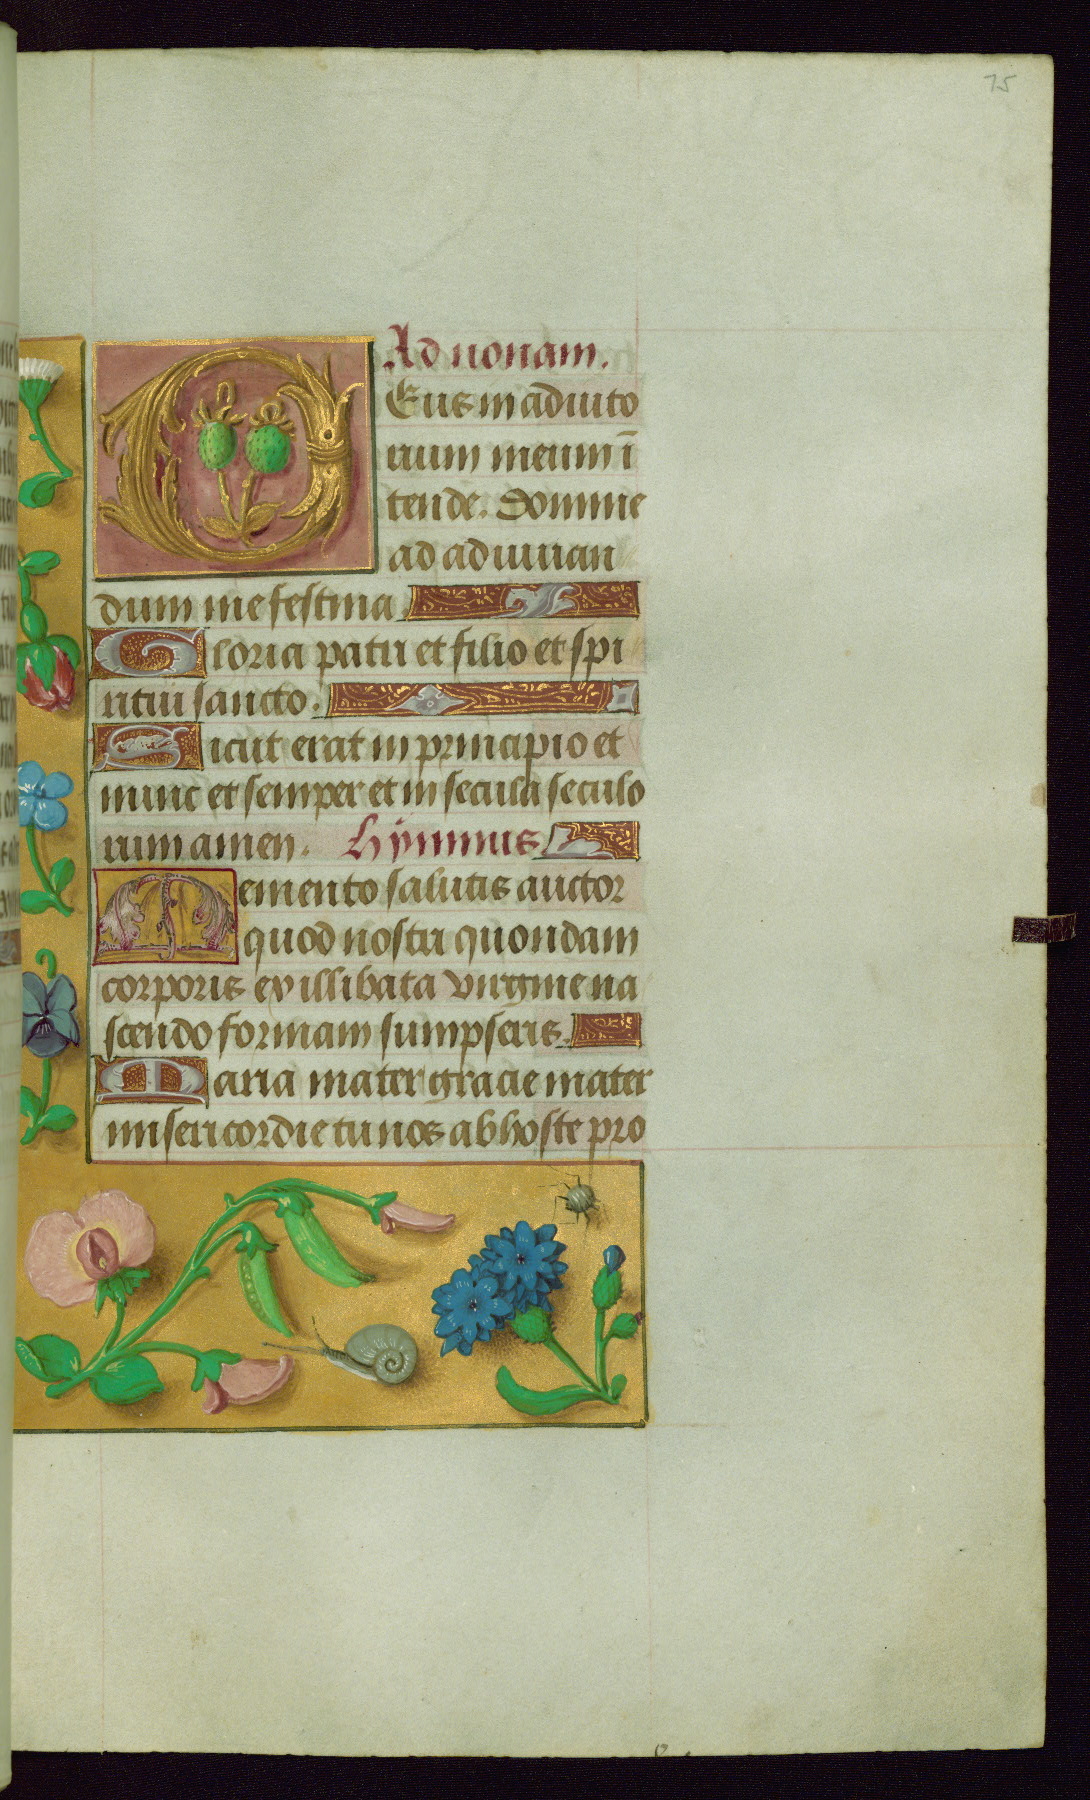 75
Ad nonam.
DEus in adiuto
rium meum ī
tende. Domine
ad adiuuan
dum me festina.
Gloria patri et filio et spi
ritui sancto.
Sicut erat in principio et
nunc et semper et in secula seculo
rum amen. Hymnus
Memento salutis auctor
quod nostri quondam
corporis ex illibata virgine na
scendo formam sumpseris.
Maria mater gracie mater
misericordie tu nos ab hoste pro